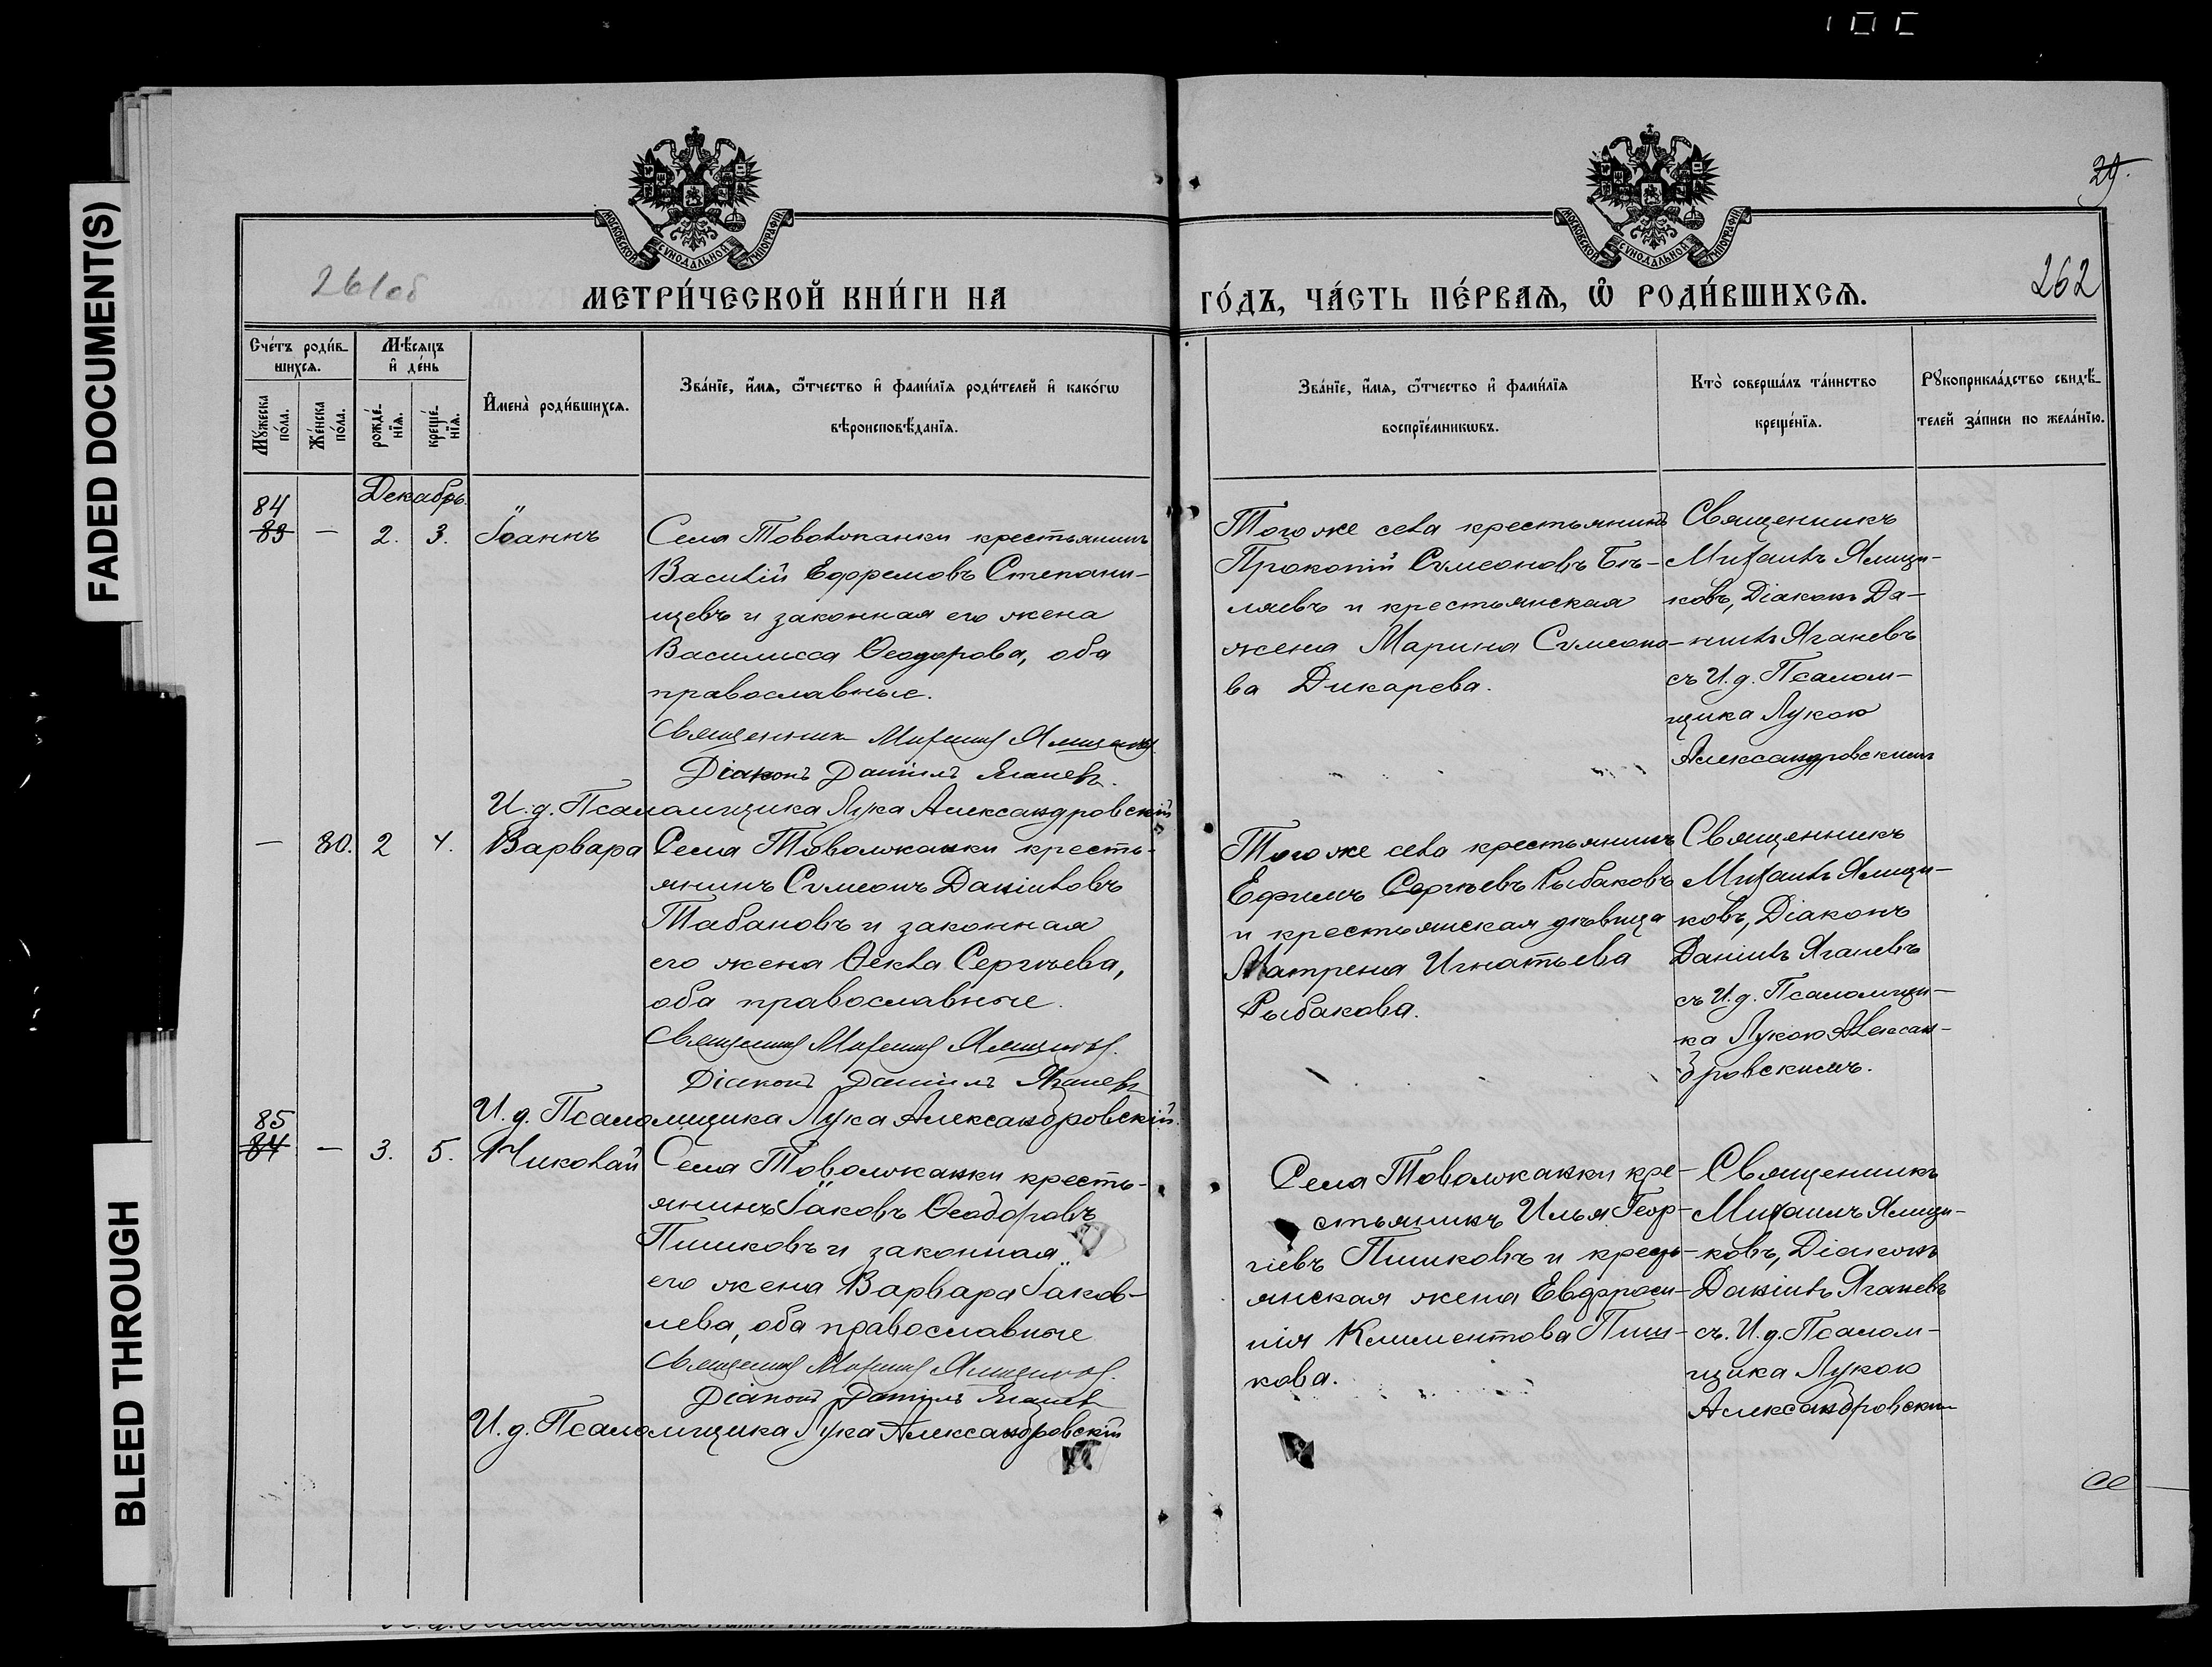 FADED DOCUMENT(S)
BLEED THROUGH
29.
261об
262
МОСКОВСКОЙ СѴНОДАЛЬНОЙ ТИПОГРАФІИ
МОСКОВСКОЙ СѴНОДАЛЬНОЙ ТИПОГРАФІИ
МЕТРИ́ЧЕСКОЙ КНИ́ГИ НА
ГО́ДЪ, ЧА́СТЬ ПЕ́РВАѦ, Ѡ РОДИ́ВШИХСѦ.
Сче́тъ роди́в-
шихсѧ.
Мѣ́сѧцъ
и де́нь
Мꙋ́жеска по́ла.
Же́нска по́ла.
рожде́-
нїѧ.
креще́-
нїѧ.
Имена̀ роди́вшихсѧ.
Зва́нїе, и́мѧ, ѻ́тчество и фами́лїѧ роди́телей и како́гѡ
вѣроисповѣ́данїѧ.
Зва́нїе, и́мѧ, ѻ́тчество и фами́лїѧ
воспрїе́мникѡвъ.
Кто̀ соверша́лъ та́инство
креще́нїѧ.
Рꙋкоприкла́дство свидѣ́-
телей за́писи по жела́нїю.
Декабрь.
84
83 — 2. 3. Іоаннъ
Села Товолжанки крестьянинъ
Василій Ефремовъ Степани-
щевъ и законная его жена
Василисса Ѳеодорова, оба
православные.
Священникъ Михаилъ Ямщиковъ.
Діаконъ Даніилъ Яганевъ.
И. д. Псаломщика Лука Александровскій
Того же села крестьянинъ
Прокопій Сѵмеоновъ Бѣ-
ляевъ и крестьянская
жена Марина Сѵмеоно-
ва Дикарева.
Священникъ
Михаилъ Ямщи-
ковъ, Діаконъ Да-
ніилъ Яганевъ
съ И. д. Псалом-
щика Лукою
Александровскимъ
— 80. 2 4. Варвара
Села Товолжанки кресть-
янинъ Сѵмеонъ Даніиловъ
Табановъ и законная
его жена Ѳекла Сергѣева,
оба православные.
Священникъ Михаилъ Ямщиковъ.
Діаконъ Даніилъ Яганевъ
И. д. Псаломщика Лука Александровскій.
Того же села крестьянинъ
Ефимъ Сергѣевъ Рыбаковъ
и крестьянская дѣвица
Матрена Игнатьева
Рыбакова.
Священникъ
Михаилъ Ямщи-
ковъ, Діаконъ
Даніилъ Яганевъ
съ И. д. Псаломщи-
ка Лукою Алексан-
дровскимъ.
85
84 — 3. 5. Николай
Села Товолжанки кресть-
янинъ Іаковъ Ѳеодоровъ
Пишковъ и законная
его жена Варвара Іаков-
лева, оба православные
Священникъ Михаилъ Ямщиковъ.
Діаконъ Даніилъ Яганевъ
И. д. Псаломщика Лука Александровскій
Села Товолжанки кре-
стьянинъ Илья Геор-
гіевъ Пишковъ и кресть-
янская жена Евфроси-
нія Климентова Пиш-
кова.
Священникъ
Михаилъ Ямщи-
ковъ, Діаконъ
Даніилъ Яганевъ
съ. И. д. Псалом-
щика Лукою
Александровскимъ